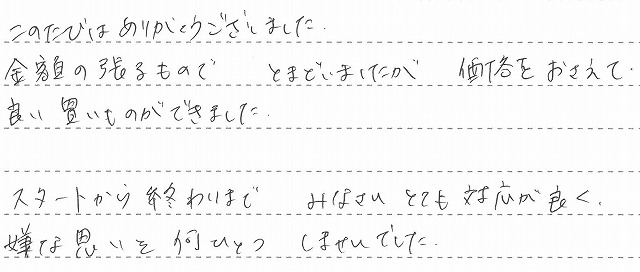 このたびは ありがとうございました.
金額の張るもので とまどいましたが 価格を おさえて.
良い 買いものができました.
スタートから 終わりまで みなさい とても 対応が 良く.
嫌な思いを 何ひとつ しませんでした.